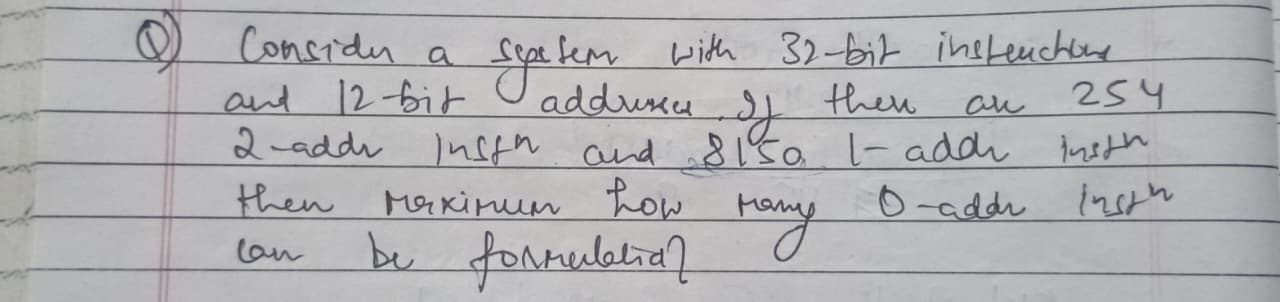 Q) Consider a system with 32-bit instructions
and 12-bit addresses. If there are 254
2-addr instn and 8150 1-addr instn
then maximum how many 0-addr instn
can be formulated?